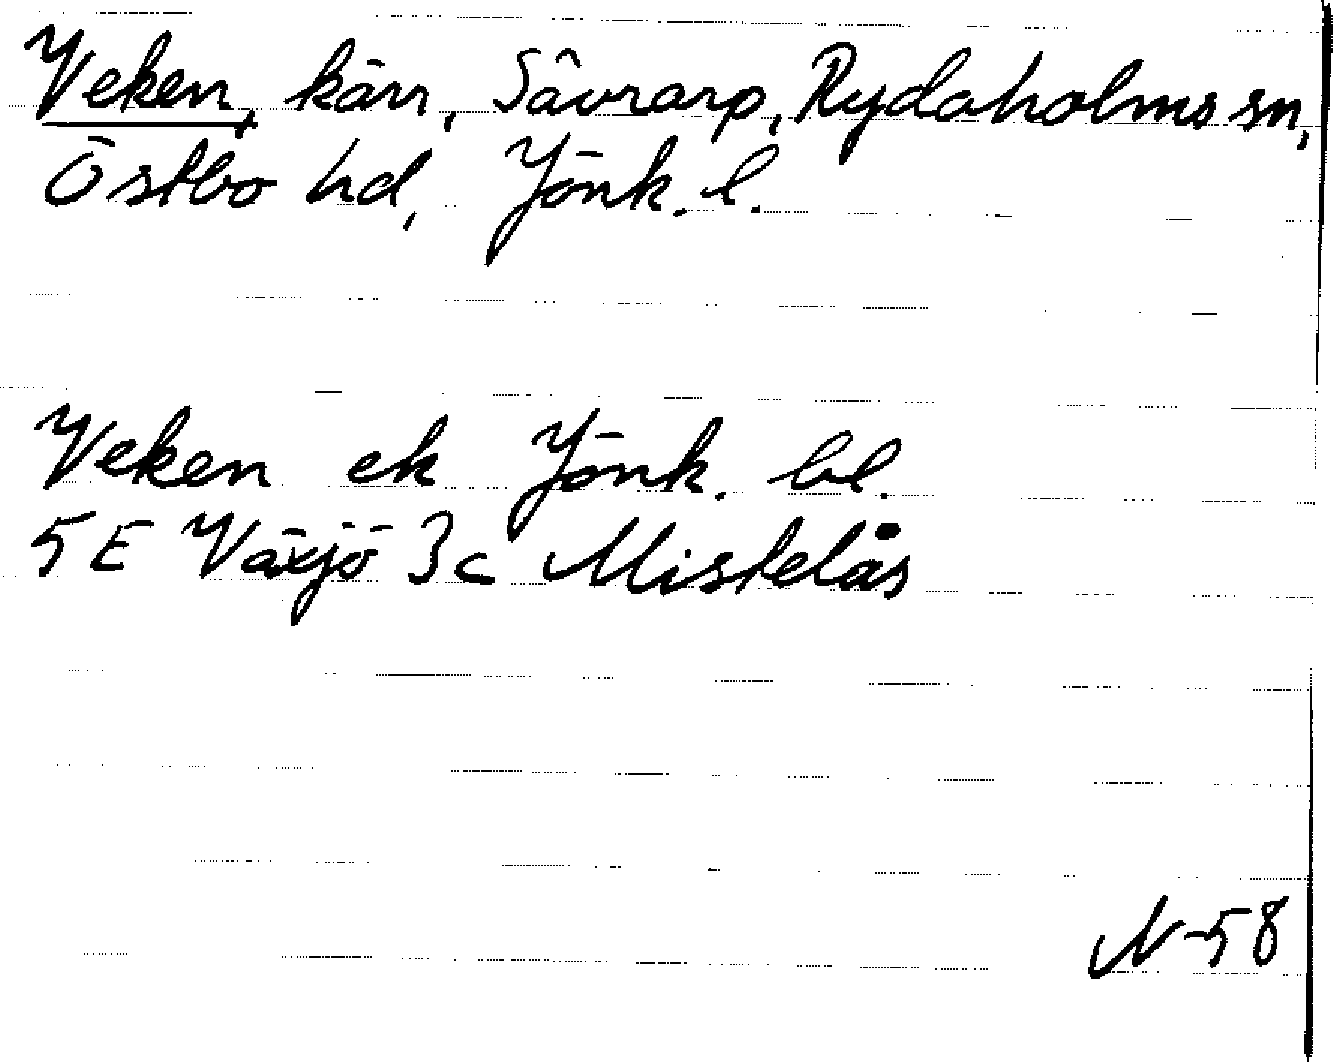 Veken, kärr, Såvrarp, Rydaholms sn,
Östbo hd, Jönk. l.
Veken ek Jönk. bl.
5E Växjö 3c Mistelås
N-58